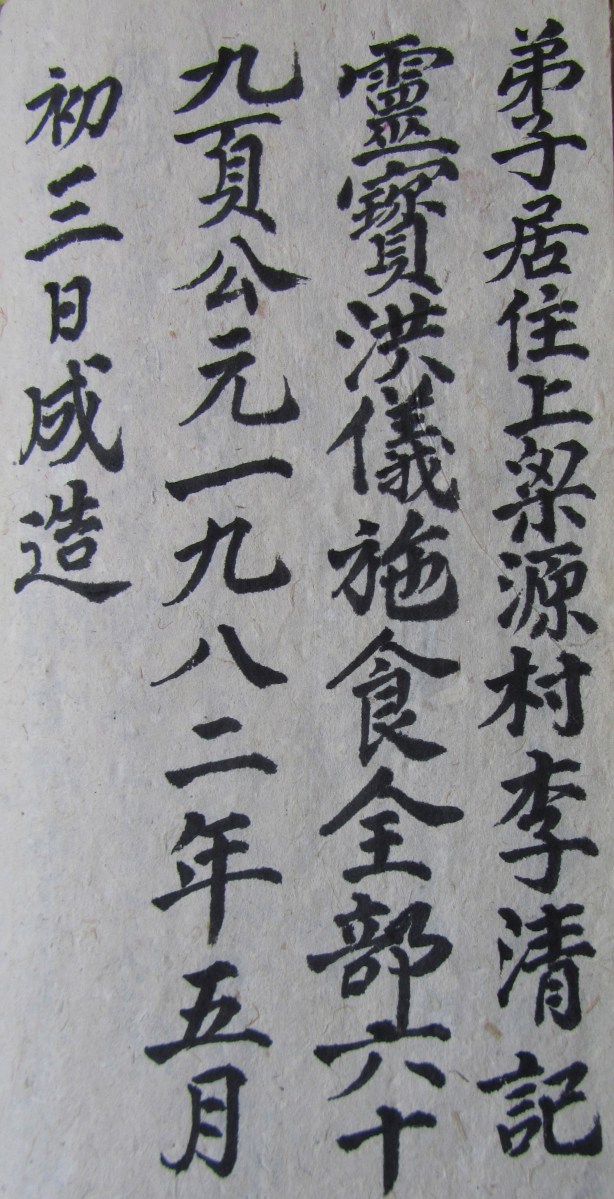 弟子居住上梁源村李清記
靈寶洪儀施食全部六十
九頁公元一九八二年五月
初三日成造